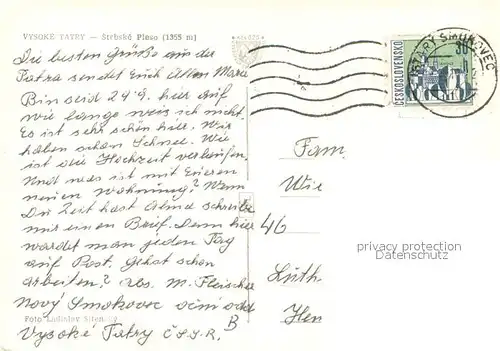 VYSOKÉ TATRY — Štrbské Pleso (1355 m)
Die besten Grüße aus der
Tatra sendet Euch allen Marie
Bin seid 24.9. hier auf
wie lange weis ich nicht.
Es ist sehr schön hier, Wir
haben schon Schnee. Wie
ist die Hochzeit verlaufen.
Und was ist mit Eueren
neuen Wohnung? Wenn
Du Zeit hast Alma schreibe
mir einen Brief. Denn hier
wardet man jeden Tag
auf Post. Gehst schon
arbeiten? Abs. M. Fleischer
Nový Smokovec odd
B
Vysoké Tatry Č.S.S.R.
Foto Ladislav Sitenský
STARÝ SMOKOVEC
ČESKOSLOVENSKO
30
Fam.
Wie
46
Luth
Hen
privacy protection
Datenschutz